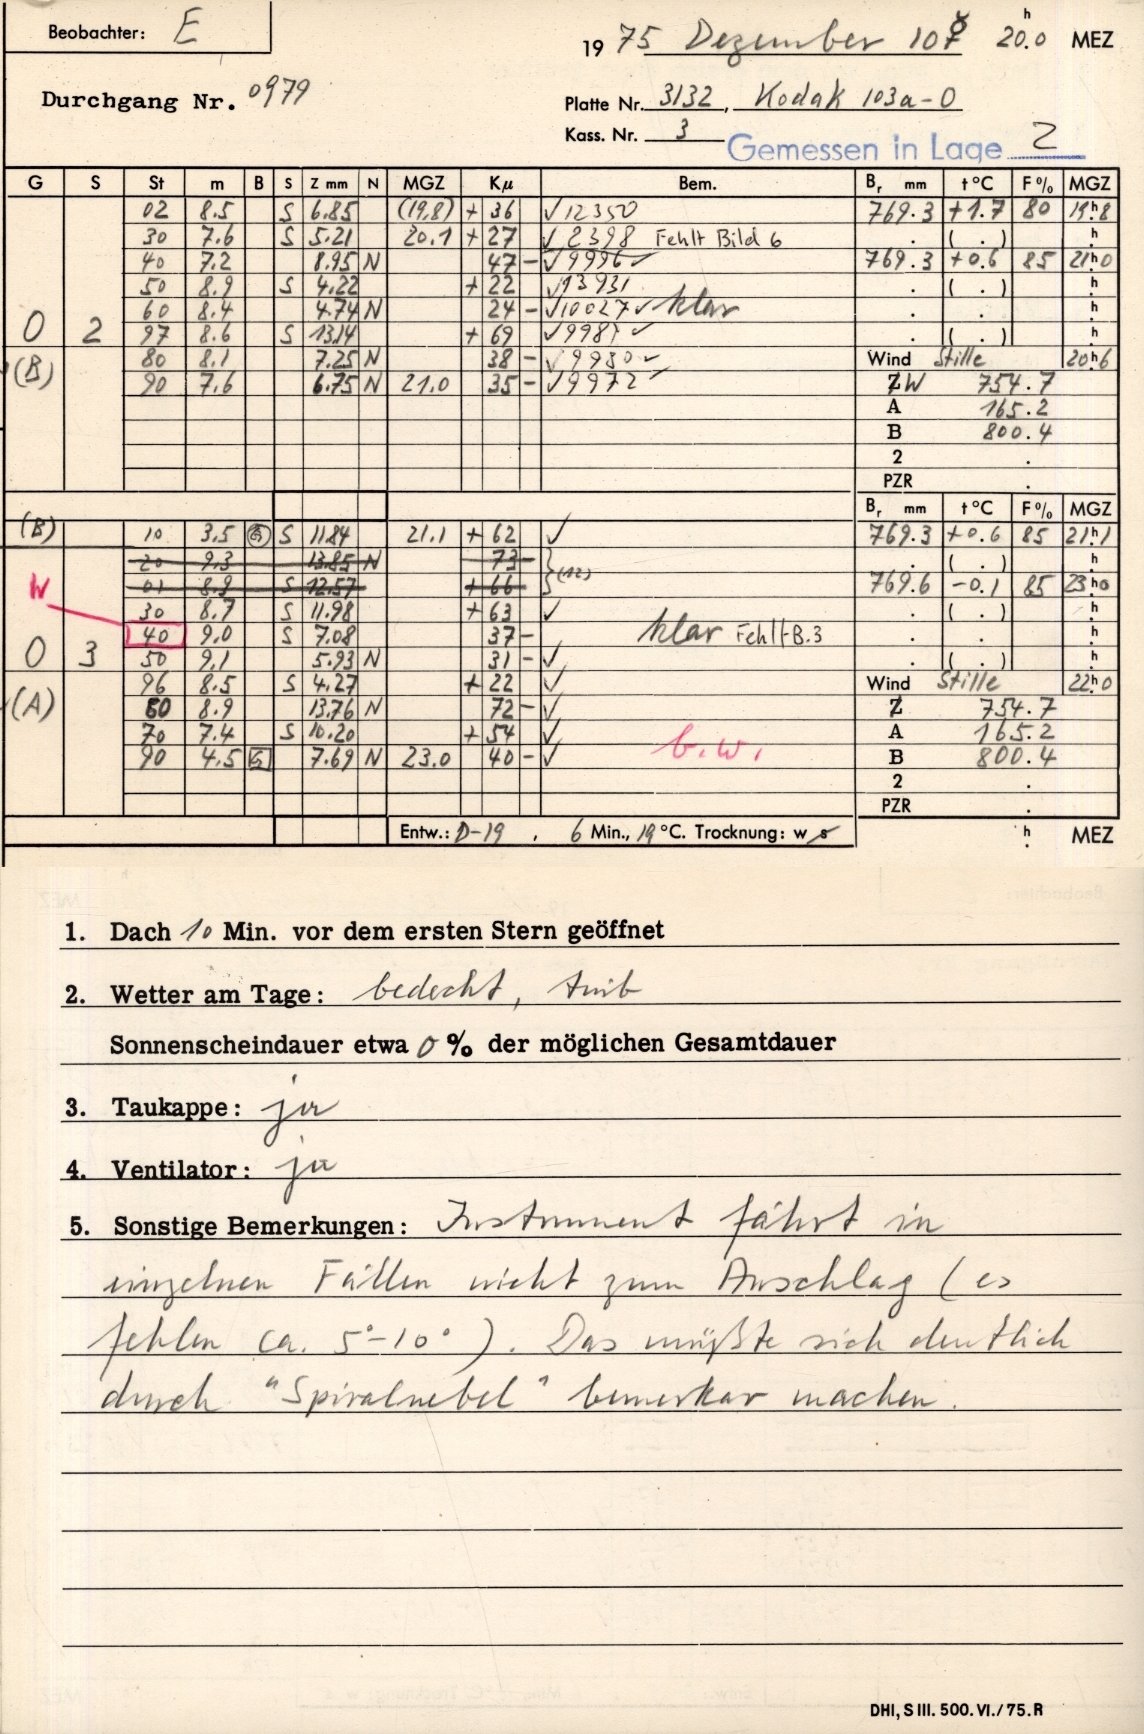 Beobachter: E
19 75 Dezember 10 20.0 h MEZ
Durchgang Nr. 0979
Platte Nr. 3132, Kodak 103a-O
Kass. Nr. 3
Gemessen in Lage 2
G S St m B S Z mm N MGZ Kμ Bem. Br mm t °C F % MGZ
02 8.5 S 6.85 (19.8) + 36 √ 12350 769.3 +1.7 80 19h8
30 7.6 S 5.21 20.1 + 27 √ 2398 Fehlt Bild 6 . ( . ) h
40 7.2 8.95 N 47 - √ 9996 ✓ 769.3 +0.6 85 21h0
50 8.9 S 4.22 + 22 √ 13931 . ( . ) h
60 8.4 4.74 N 24 - √ 10027 ✓ klar . . h
0 2 97 8.6 S 13.14 + 69 √ 9981 ✓ . ( . ) h
(B) 80 8.1 7.25 N 38 - √ 9980 ✓ Wind Stille 20h6
90 7.6 6.75 N 21.0 35 - √ 9972 ✓ Z W 754.7
A 165.2
B 800.4
2 .
PZR .
Br mm t °C F % MGZ
(B) 10 3.5 G S 11.84 21.1 + 62 ✓ 769.3 +0.6 85 21h1
20 9.3 13.85 N 73 - . ( . ) h
01 8.9 S 12.57 + 66 (12) 769.6 -0.1 85 23h0
W 30 8.7 S 11.98 + 63 ✓ . ( . ) h
40 9.0 S 7.08 37 - klar Fehlt B.3 . . h
0 3 50 9.1 5.93 N 31 - ✓ . ( . ) h
96 8.5 S 4.27 + 22 ✓ Wind Stille 22h0
(A) 60 8.9 13.76 N 72 - ✓ Z 754.7
70 7.4 S 10.20 + 54 ✓ A 165.2
90 4.5 G 7.69 N 23.0 40 - ✓ b.w. B 800.4
2 .
PZR .
Entw.: D-19, 6 Min., 19 °C. Trocknung: w s h MEZ
1. Dach 10 Min. vor dem ersten Stern geöffnet
2. Wetter am Tage: bedeckt, trüb
Sonnenscheindauer etwa 0 % der möglichen Gesamtdauer
3. Taukappe: ja
4. Ventilator: ja
5. Sonstige Bemerkungen: Instrument fährt in
einzelnen Fällen nicht zum Anschlag (es
fehlen ca. 5°-10°). Das müßte sich deutlich
durch "Spiralnebel" bemerkbar machen.
DHI, S III. 500. VI./75. R